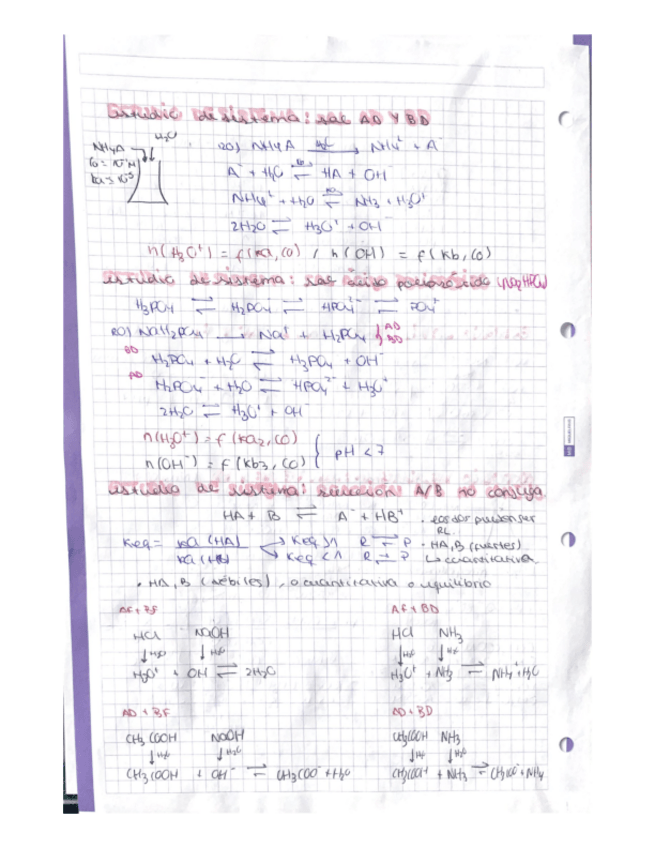 estudio de sistema: sal AD y BD
H₂O
NH₄A
ac) NH₄A —H₂O→ NH₄⁺ + A⁻
C₀ = 10⁻²M
A⁻ + H₂O ⇌ HA + OH⁻
NH₄⁺ + H₂O ⇌ NH₃ + H₃O⁺
2H₂O ⇌ H₃O⁺ + OH⁻
n(H₃O⁺) = f(ka, C₀) / n(OH⁻) = f(kb, C₀)
estudio de sistema: sal ácido poliprótico
H₃PO₄ ⇌ H₂PO₄⁻ ⇌ HPO₄²⁻ ⇌ PO₄³⁻
NaH₂PO₄ → Na⁺ + H₂PO₄⁻ } AD
BD
BD H₂PO₄⁻ + H₂O ⇌ H₃PO₄ + OH⁻
AD H₂PO₄⁻ + H₂O ⇌ HPO₄²⁻ + H₃O⁺
2H₂O ⇌ H₃O⁺ + OH⁻
n(H₃O⁺) = f(ka₂, C₀)
n(OH⁻) = f(kb₃, C₀) } pH < 7
estudio de sistema: reacción A/B no conjuga
HA + B ⇌ A⁻ + HB⁺ . los dos pueden ser RL
Keq = ka (HA) → Keq >1 R ⇌ P . HA, B (fuertes)
Keq <1 R ⇌ P ↳ cuantitativa
. HA, B (débiles), o cuantitativa o equilibrio
AF + BF AF + BD
HCl NaOH HCl NH₃
↓H₂O ↓H₂O ↓H₂O ↓H₂O
H₃O⁺ + OH⁻ ⇌ 2H₂O H₃O⁺ + NH₃ ⇌ NH₄⁺ + H₂O
AD + BF AD + BD
CH₃COOH NaOH CH₃COOH NH₃
↓H₂O ↓H₂O ↓H₂O ↓H₂O
CH₃COOH + OH⁻ ⇌ CH₃COO⁻ + H₂O CH₃COOH + NH₃ ⇌ CH₃COO⁻ + NH₄